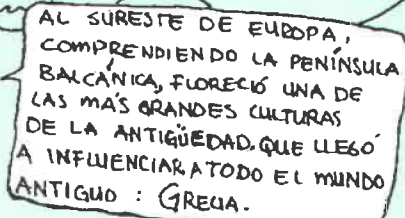 AL SURESTE DE EUROPA,
COMPRENDIENDO LA PENÍNSULA
BALCÁNICA, FLORECIÓ UNA DE
LAS MÁS GRANDES CULTURAS
DE LA ANTIGÜEDAD, QUE LLEGÓ
A INFLUENCIAR A TODO EL MUNDO
ANTIGUO : GRECIA.